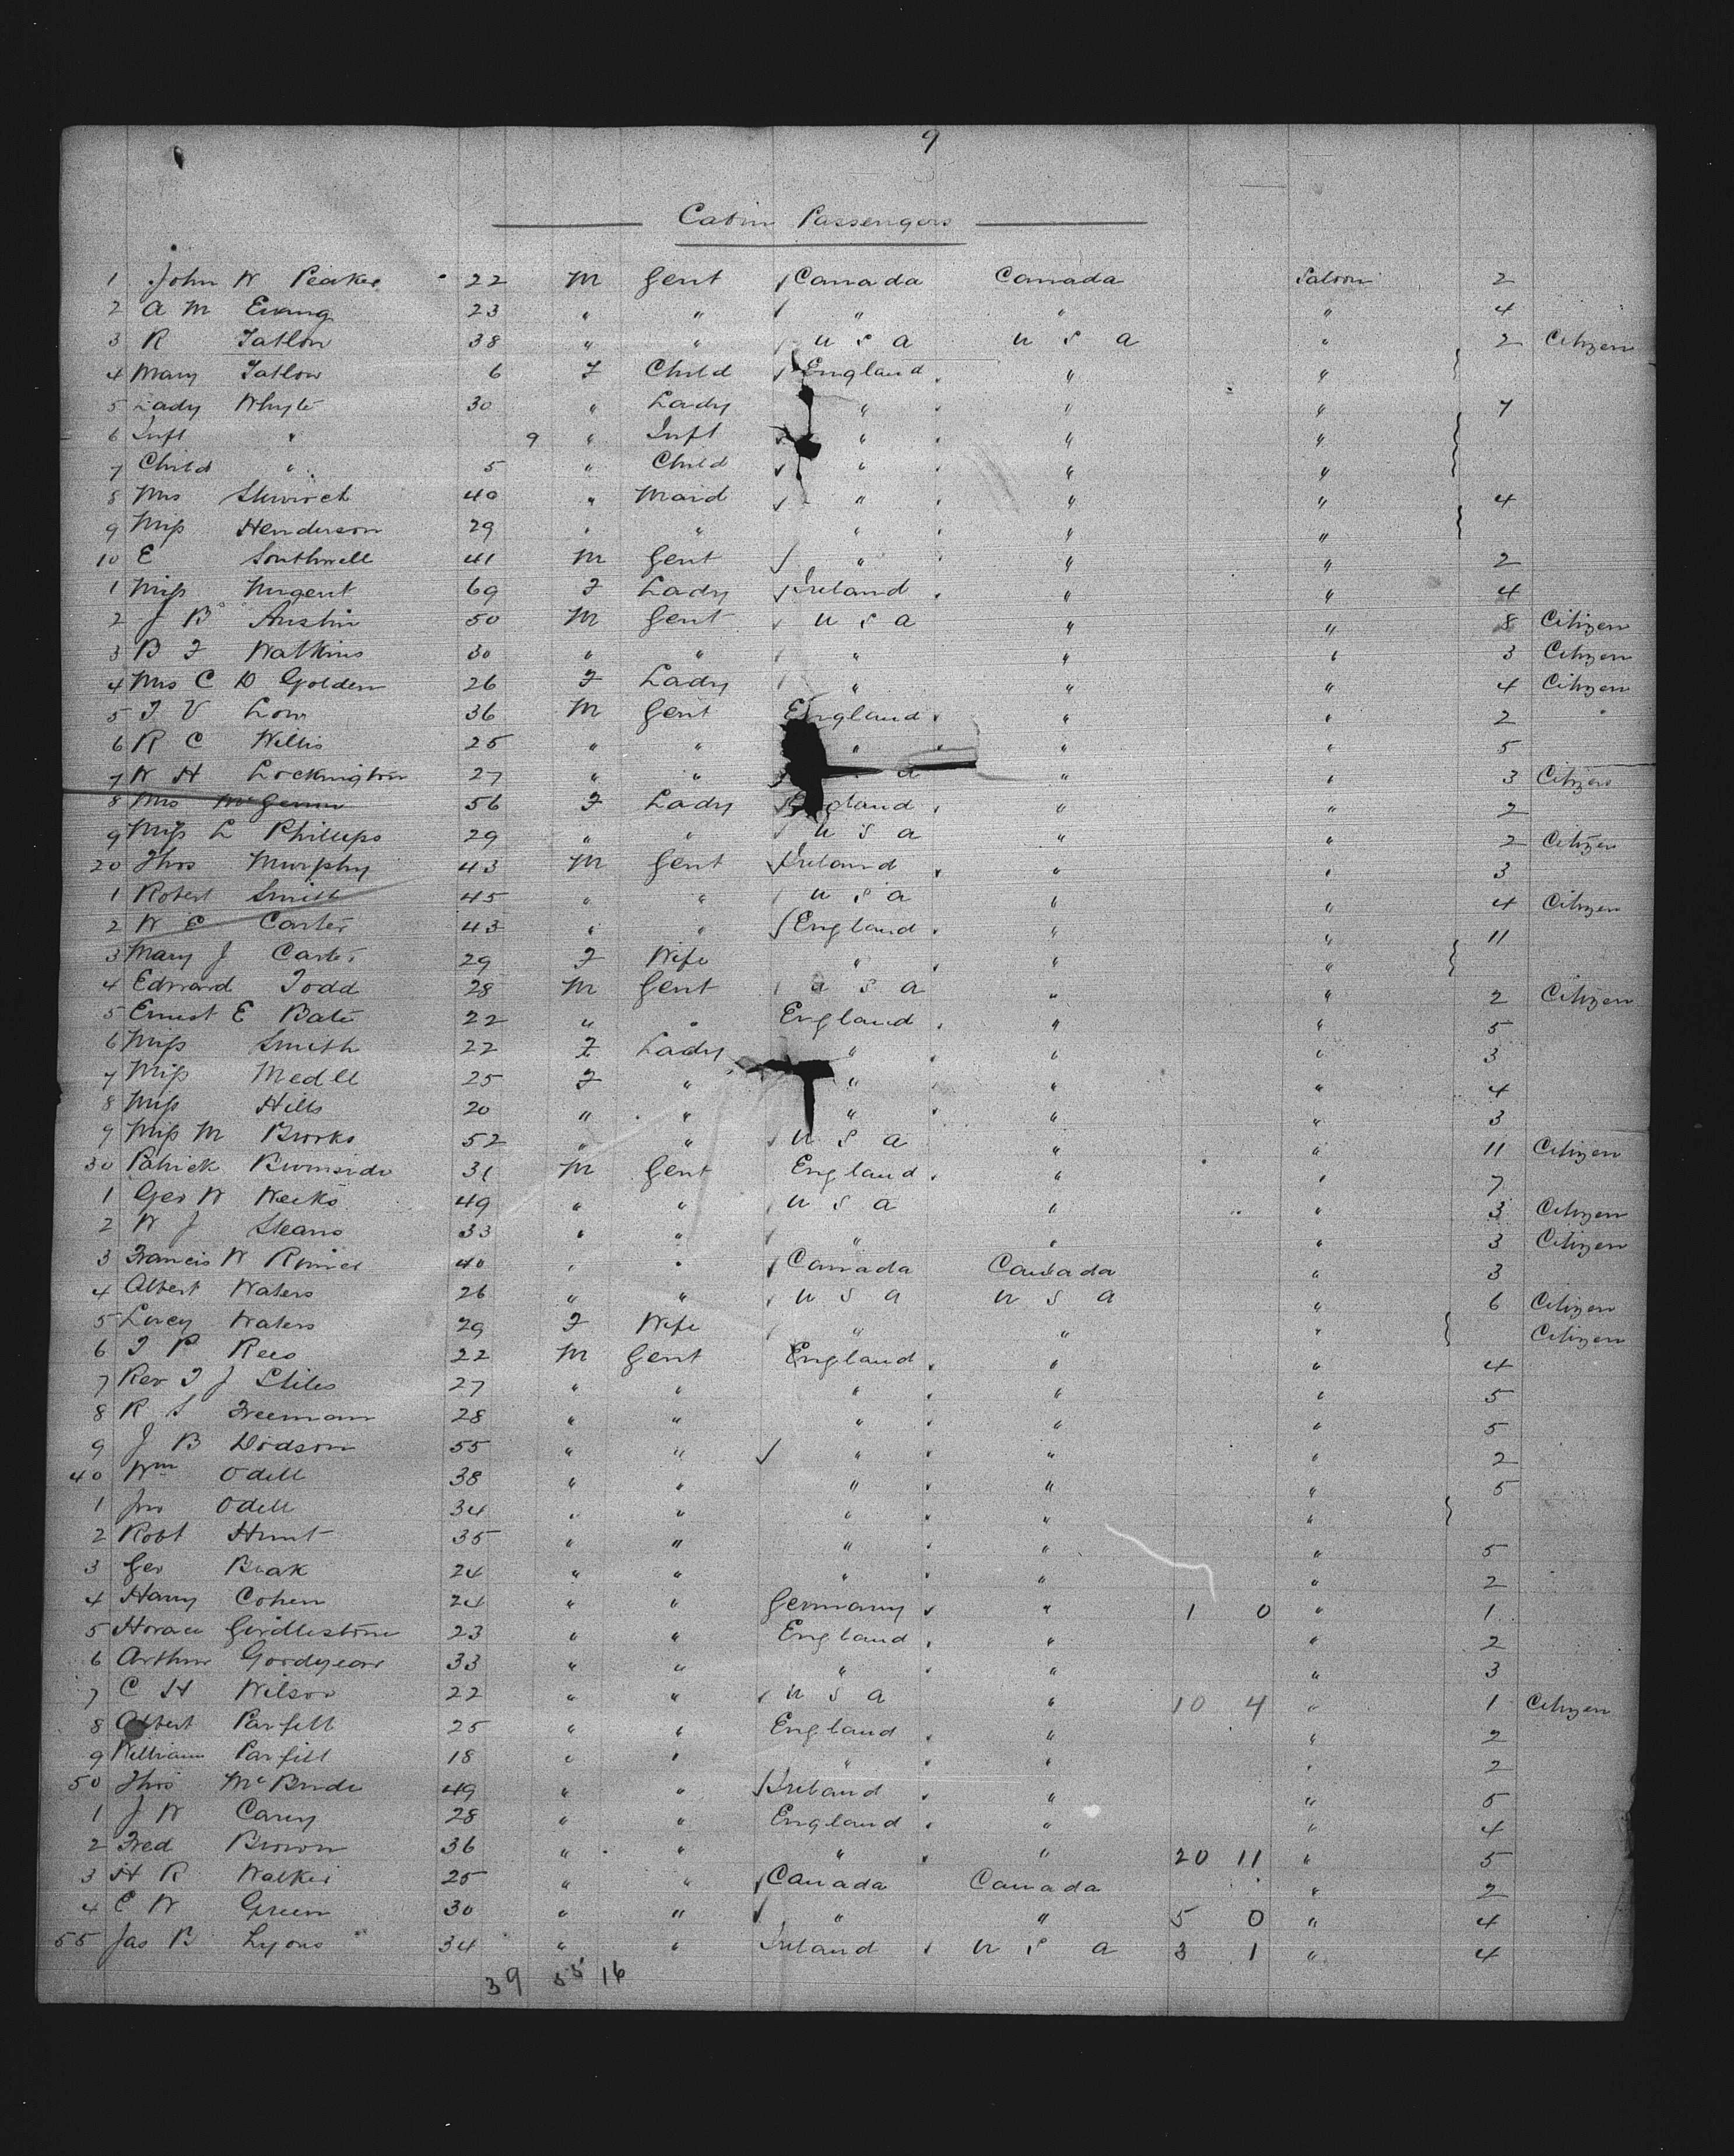 9
Cabin Passengers
1 John W 22 M Gent Canada Canada Saloon 2
2 A M Ewing 23 " " " " " 4
3 R Tatlow 38 " " U S A U S A " 2 Citizen
4 Mary Tatlow 6 F Child England " "
5 Lady Whyte 30 " Lady " " " 7
6 Inft " 9 " Inft " " "
7 Child " 5 " Child " " "
8 Mrs 40 " Maid " " " 4
9 Miss Henderson 29 " " " " "
10 E Southwell 41 M Gent " " " 2
1 Miss Nugent 69 F Lady Ireland " " 4
2 J B Austin 50 M Gent U S A " " 8 Citizen
3 B F Watkins 30 " " " " " 3 Citizen
4 Mrs C D Golden 26 F Lady " " " 4 Citizen
5 T V Low 36 M Gent England " " 2
6 R C Willis 25 " " " " " 5
7 W H Lockington 27 " " a " " 3 Citizen
8 Mrs 56 F Lady England " " 2
9 Miss L Phillips 29 " " U S A " " 2 Citizen
20 Thos Murphy 43 M Gent Ireland " " 3
1 Robert Smith 45 " " U S A " " 4 Citizen
2 W E Carter 43 " " England " " 11
3 Mary J Carter 29 F Wife " " "
4 Edward Todd 28 M Gent U S A " " 2 Citizen
5 Ernest E Bate 22 " " England " " 5
6 Miss Smith 22 F Lady " " " 3
7 Miss 25 F " " " " 4
8 Miss Hills 20 " " " " " 3
9 Miss M Burks 52 " " U S A " " 11 Citizen
30 Patrick Burnside 31 M Gent England " " 7
1 Geo W Weeks 49 " " U S A " " 3 Citizen
2 W J Stearns 33 " " " " " 3 Citizen
3 Francis W 40 " " Canada Canada " 3
4 Albert Waters 26 " " U S A U S A " 6 Citizen
5 Lucy Waters 29 F Wife " " " Citizen
6 T P Rees 22 M Gent England " " 4
7 Rev T J Stiles 27 " " " " " 5
8 R S Freeman 28 " " " " " 5
9 J B Dodson 55 " " " " " 2
40 Wm Odell 38 " " " " " 5
1 Jno Odell 34 " " " " "
2 Robt Hunt 35 " " " " " 5
3 Geo Beak 24 " " " " " 2
4 Harry Cohen 24 " " Germany " 1 0 " 1
5 Horace Girdlestone 23 " " England " " 2
6 Arthur Goodyear 33 " " " " " 3
7 C H Wilson 22 " " U S A " 10 4 " 1 Citizen
8 Albert Parfitt 25 " " England " " 2
9 William Parfitt 18 " " " " " 2
50 Thos McBride 49 " " Ireland " " 5
1 J W Carey 28 " " England " " 4
2 Fred Brown 36 " " " " 20 11 " 5
3 H R Walker 25 " " Canada Canada " 2
4 C W Green 30 " " " " 5 0 " 4
55 Jas B Lyons 34 " " Ireland U S A 3 1 " 4
39 55 16